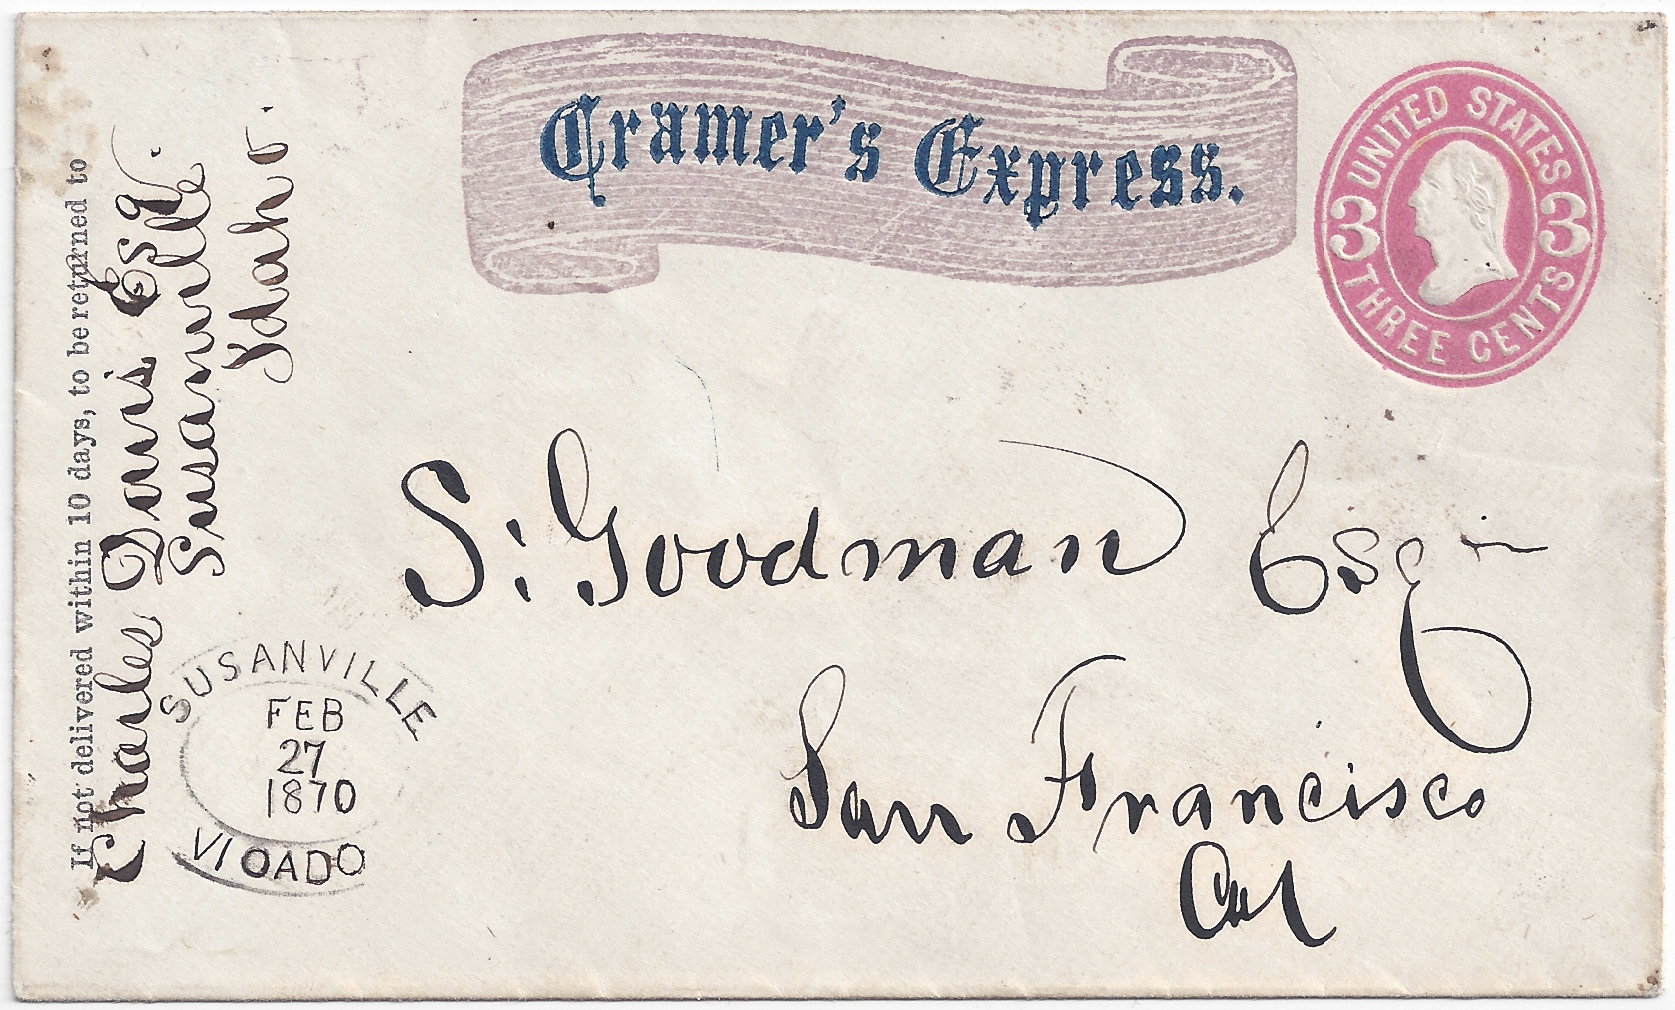 Cramer's Express.
UNITED STATES
3 3
THREE CENTS
If not delivered within 10 days, to be returned to
Charles Davis Esq.
Susanville
Idaho.
S: Goodman Esq
San Francisco
Cal
SUSANVILLE
FEB
27
1870